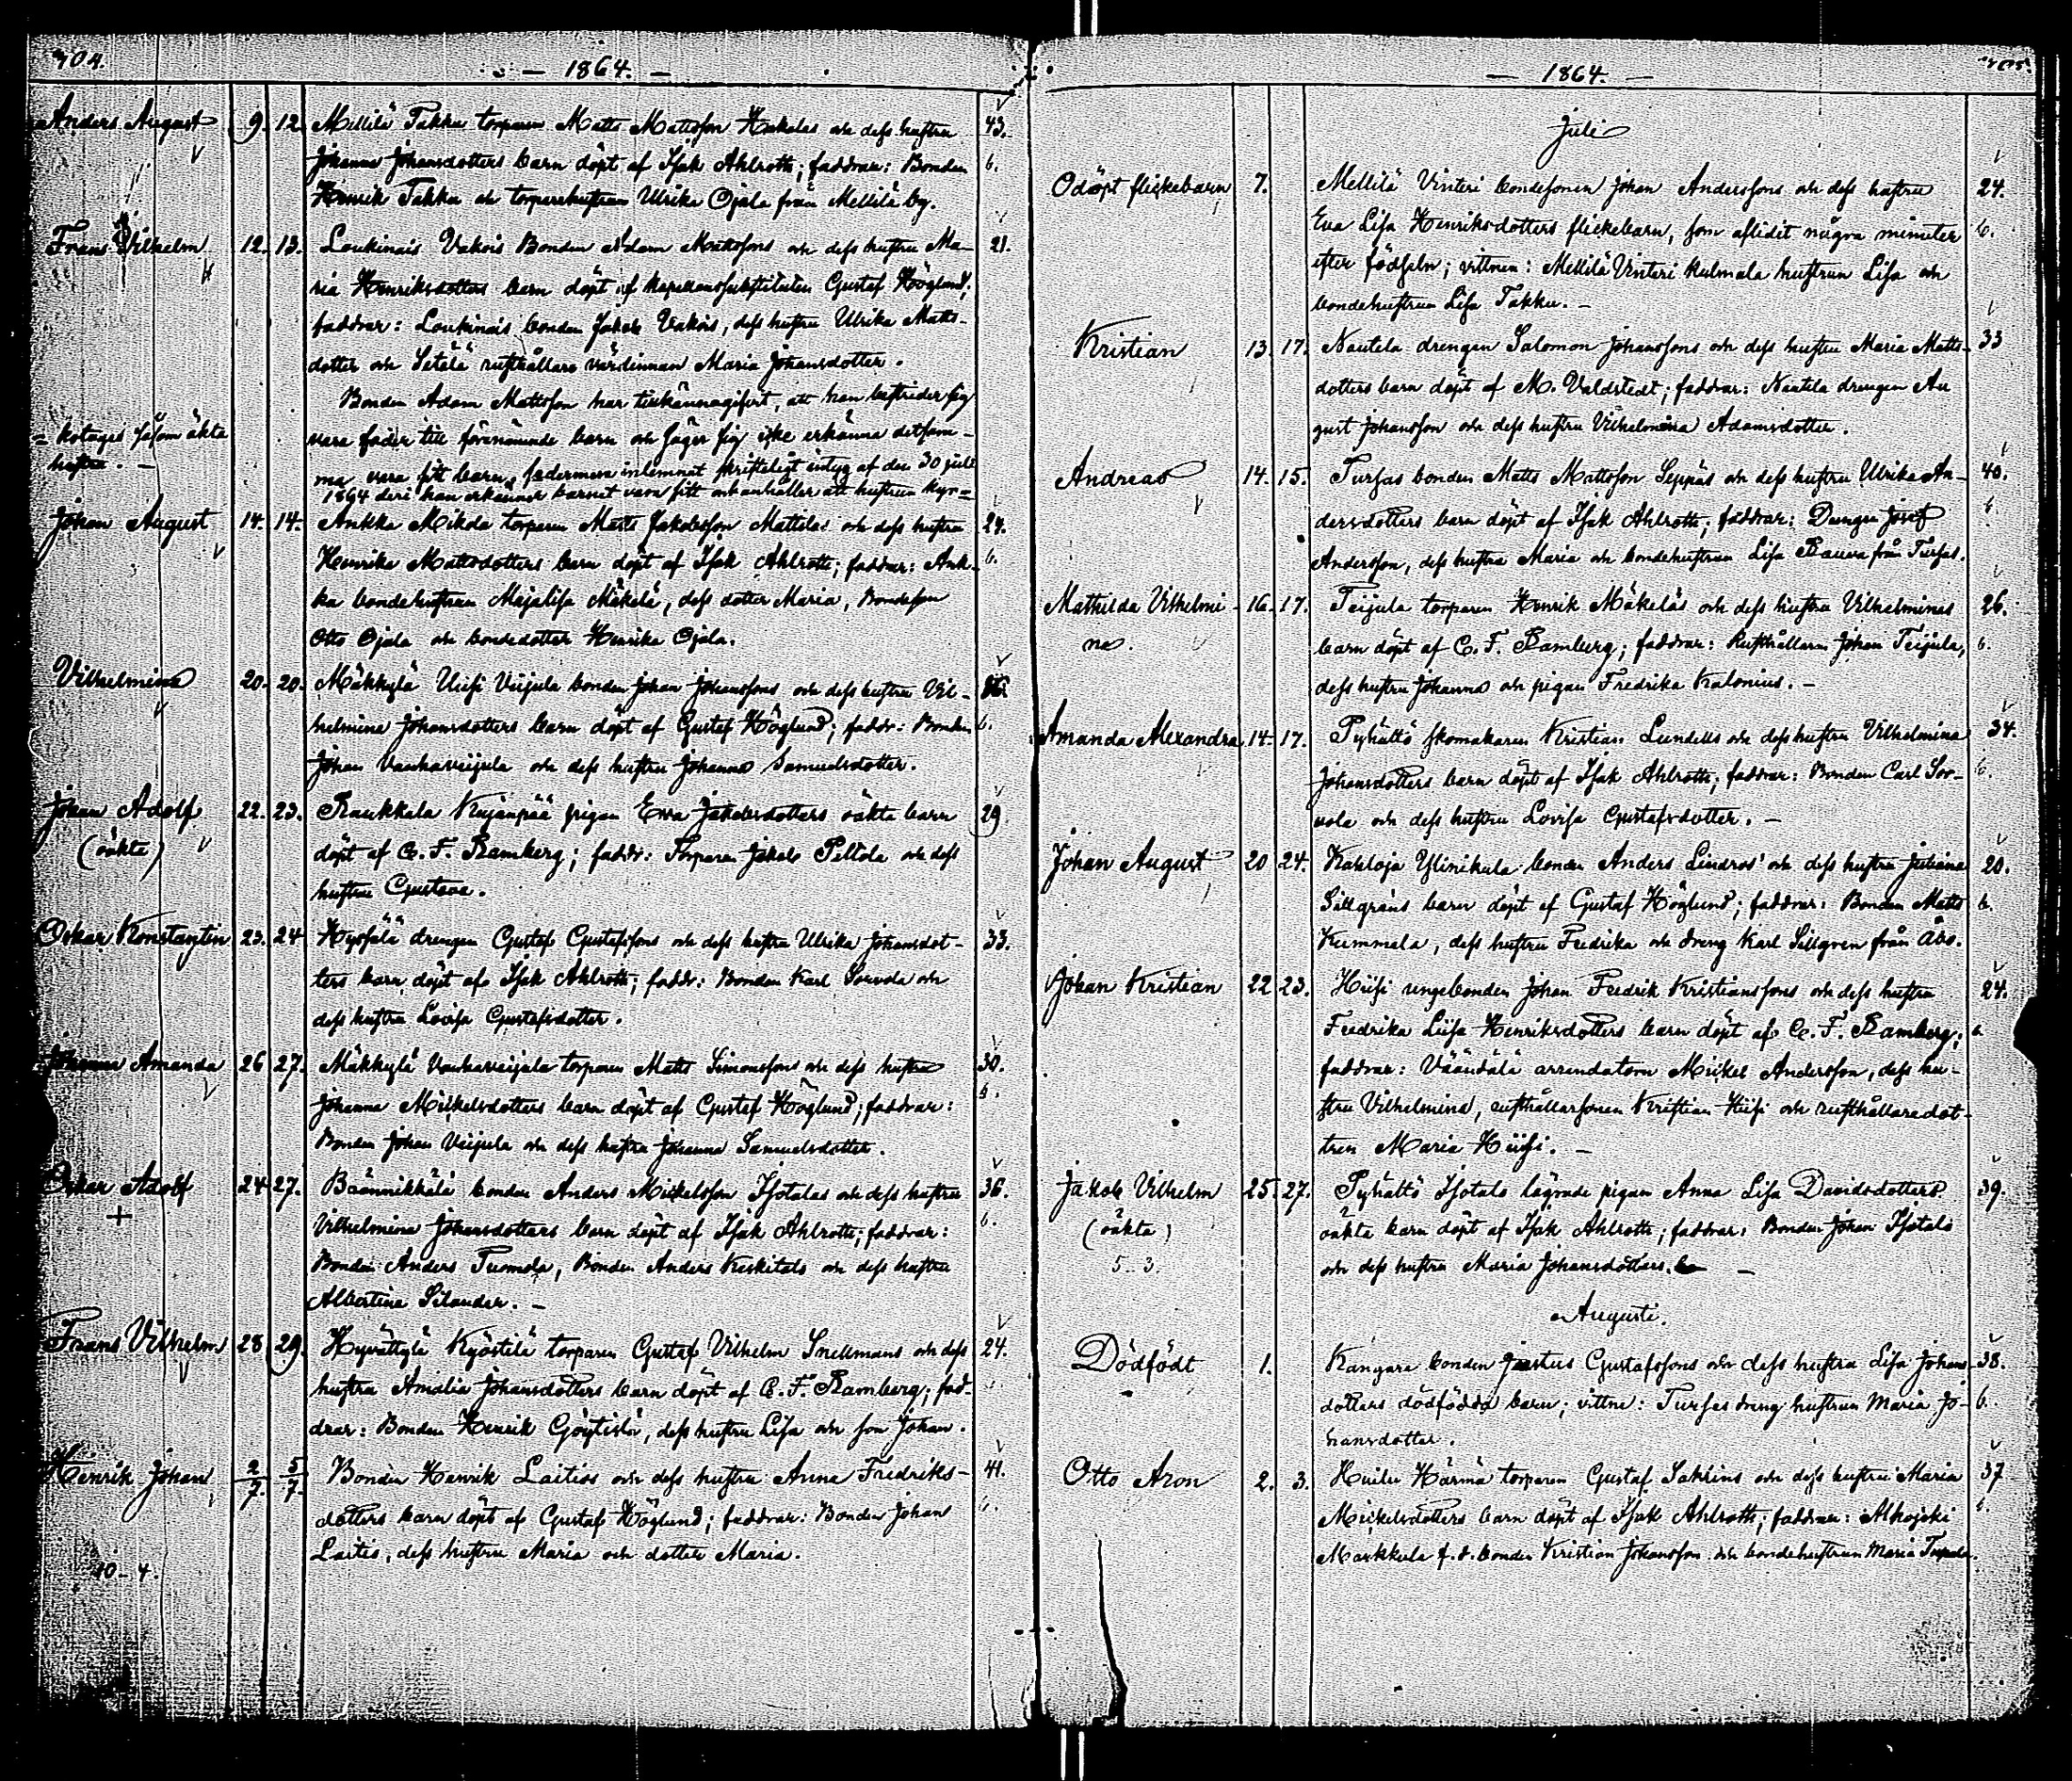 704.
— 1864. —
Anders August 9. 12. Mellilä Takku torparen Matts Mattsson Hakalas och dess hustru 43.
Johanna Johansdotters barn döpt af Isak Ahlroth; faddrar: Bonden 6.
Henrik Takku och torparehustrun Ulrika Ojala från Mellilä by.
Frans Vilhelm 12. 13. Loukinais Vakois Bonden Adam Mattssons och dess hustru Ma- 21.
ria Henriksdotters barn döpt af kapellanssubstituten Gustaf Höglund;
faddrar: Loukinais bonden Jakob Vakois, dess hustru Ulrika Matts-
dotter och Setälä rusthållare värdinnan Maria Johansdotter.
Bonden Adam Mattsson har tillkännagifvit, att han bestrider sig
vara fader till förenämnde barn och säger sig icke erkänna detsam-
ma vara sitt barn, fadermera inlemnat skrifteligt intyg af den 30 juli
1864 deri han erkänner barnet vara sitt och anhåller att hustrun kyr=
= kotages såsom äkta
hustru. —
Johan August 14. 14. Ankka Mikola torparen Matts Jakobsson Mattilas och dess hustru 24.
Henrika Mattsdotters barn döpt af Isak Ahlroth; faddrar: Ank- 6.
ka bondehustrun Majalisa Mäkelä, dess dotter Maria, Bondeson
Otto Ojala och bondedotter Henrika Ojala.
Vilhelmina 20. 20. Mäkkylä Uusi Viijula bonden Johan Johanssons och dess hustru Vil-
helmina Johansdotters barn döpt af Gustaf Höglund; faddr: Bonden 6.
Johan Vanhaviijula och dess hustru Johanna Samuelsdotter.
Johan Adolf 22. 23. Raukkala Kujanpää pigan Eva Jakobsdotters oäkta barn 29
(oäkta) döpt af C. F. Ramberg; faddr: Torparen Jakob Peltola och dess
hustru Gustava.
Oskar Konstantin 23. 24 Hypsälä drengen Gustaf Gustafssons och dess hustru Ulrika Johansdot- 33.
ters barn döpt af Isak Ahlroth; faddr: Bonden Karl Sorvola och
dess hustru Lovisa Gustafsdotter.
Johanna Amanda 26 27. Mäkkylä Vanhaviijula torparen Matts Simonssons och dess hustru 30.
Johanna Mickelsdotters barn döpt af Gustaf Höglund; faddrar: 6.
Bonden Johan Viijula och dess hustru Johanna Samuelsdotter.
Oskar Adolf 24 27. Bonden Anders Mickelsson Isotalos och dess hustru 36.
+ Vilhelmina Johansdotters barn döpt af Isak Ahlroth; faddrar: 6.
Bonden Anders Tuomola, Bonden Anders Keskitalo och dess hustru
Albertina Silander. —
Frans Vilhelm 28 29. Hyvättylä Kyöstilä torparen Gustaf Vilhelm Snellmans och dess 24.
hustru Amalia Johansdotters barn döpt af C. F. Ramberg; fad-
drar: Bonden Henrik, dess hustru Lisa och son Johan.
Henrik Johan 2/7. 5/7. Bonden Henrik Laitios och dess hustru Anna Fredriks- 41.
dotters barn döpt af Gustaf Höglund; faddrar: Bonden Johan 6.
Laitis, dess hustru Maria och dotter Maria.
10 - 4.
705.
— 1864. —
Juli
Odöpt flickebarn 7. Mellilä Vinteri bondesonen Johan Anderssons och dess hustru 24.
Eva Lisa Henriksdotters flickebarn, som aflidit några minuter 6.
efter födseln; vittnen: Mellilä Vinteri Kulmala hustrun Lisa och
bondehustrun Lisa Takku. —
Kristian 13. 17. Nautela drengen Salomon Johanssons och dess hustru Maria Matts- 33
dotters barn döpt af M. Valdstedt; faddrar: Nautela drengen Au
gust Johansson och dess hustru Vilhelmina Adamsdotter.
Andreas 14. 15. Turfas bonden Matts Mattsson Seppäs och dess hustru Ulrika An- 40.
dersdotters barn döpt af Isak Ahlroth; faddrar: Drengen Josef 6.
Andersson, dess hustru Maria och bondehustrun Lisa Rauva från Turfas.
Mathilda Vilhelmi- 16. 17. Teijula torparen Henrik Mäkeläs och dess hustru Vilhelminas 26.
na. barn döpt af C. F. Ramberg; faddrar: Rusthållaren Johan Teijula, 6.
dess hustru Johanna och pigan Fredrika Kalonius. —
Amanda Alexandra 14. 17. Pyhältö skomakaren Kristian Lundells och dess hustru Vilhelmina 34.
Johansdotters barn döpt af Isak Ahlroth; faddrar: Bonden Carl Sor- 6.
vola och dess hustru Lovisa Gustafsdotter. —
Johan August 20 24. Karloja Ylinikula bonden Anders Lindros' och dess hustru Juliana 20.
Sillgréns barn döpt af Gustaf Höglund; faddrar: Bonden Matts 6.
Kummala, dess hustru Fredrika och dreng Karl Sillgren från Åbo.
Johan Kristian 22 23. Hiisi ungebonden Johan Fredrik Kristianssons och dess hustru 24.
Fredrika Lisa Henriksdotters barn döpt af C. F. Ramberg; 6.
faddrar: Vääntälä arrendatorn Mickel Andersson, dess hu-
stru Vilhelmina, rusthållarsonen Kristian Hiisi och rusthållaredot-
tren Maria Hiisi. —
Jakob Vilhelm 25 27. Pyhältö Isotalo lägrade pigan Anna Lisa Davidsdotters 39.
(oäkta) oäkta barn döpt af Isak Ahlroth; faddrar: Bonden Johan Isotalo
5. 3. och dess hustru Maria Johansdotters. —
Augusti.
Dödfödt 1. Kangare bonden Justus Gustafssons och dess hustru Lisa Johans- 38.
dotters dödfödda barn; vittne: Turfas dreng hustrun Maria Jo- 6.
hansdotter.
Otto Aron 2. 3. Huilu Härmä torparen Gustaf Saklins och dess hustru Maria 37
Mickelsdotters barn döpt af Isak Ahlroth; faddrar: Alhojoki 6.
Markkula f. d. bonden Kristian Johansson och bondehustrun Maria